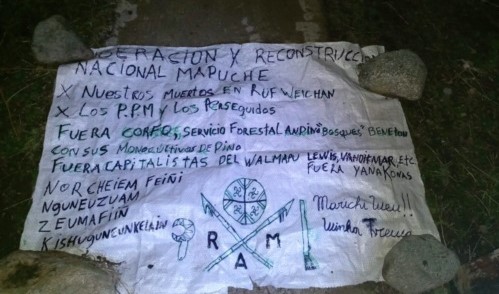 ERACION Y RECONSTRUCCI
NACIONAL MAPUCHE
X NUESTROS MUERTOS EN RUF WEICHAN
X LOS P.P.M Y LOS PERSEGUIDOS
FUERA CORFO, SERVICIO FORESTAL ANDINO "BOSQUES"
CON SUS MONOCULTIVOS DE PINO
FUERA CAPITALISTAS DEL WALMAPU LEWIS, VANDITMAR ETC
FUERA YANAKONAS
NORCHEIEM FEIÑI
NGUNEUZUAM
ZEUMAFIIN
KISHUGUNEUNKELAIN
R A M
Marichi Weu!!